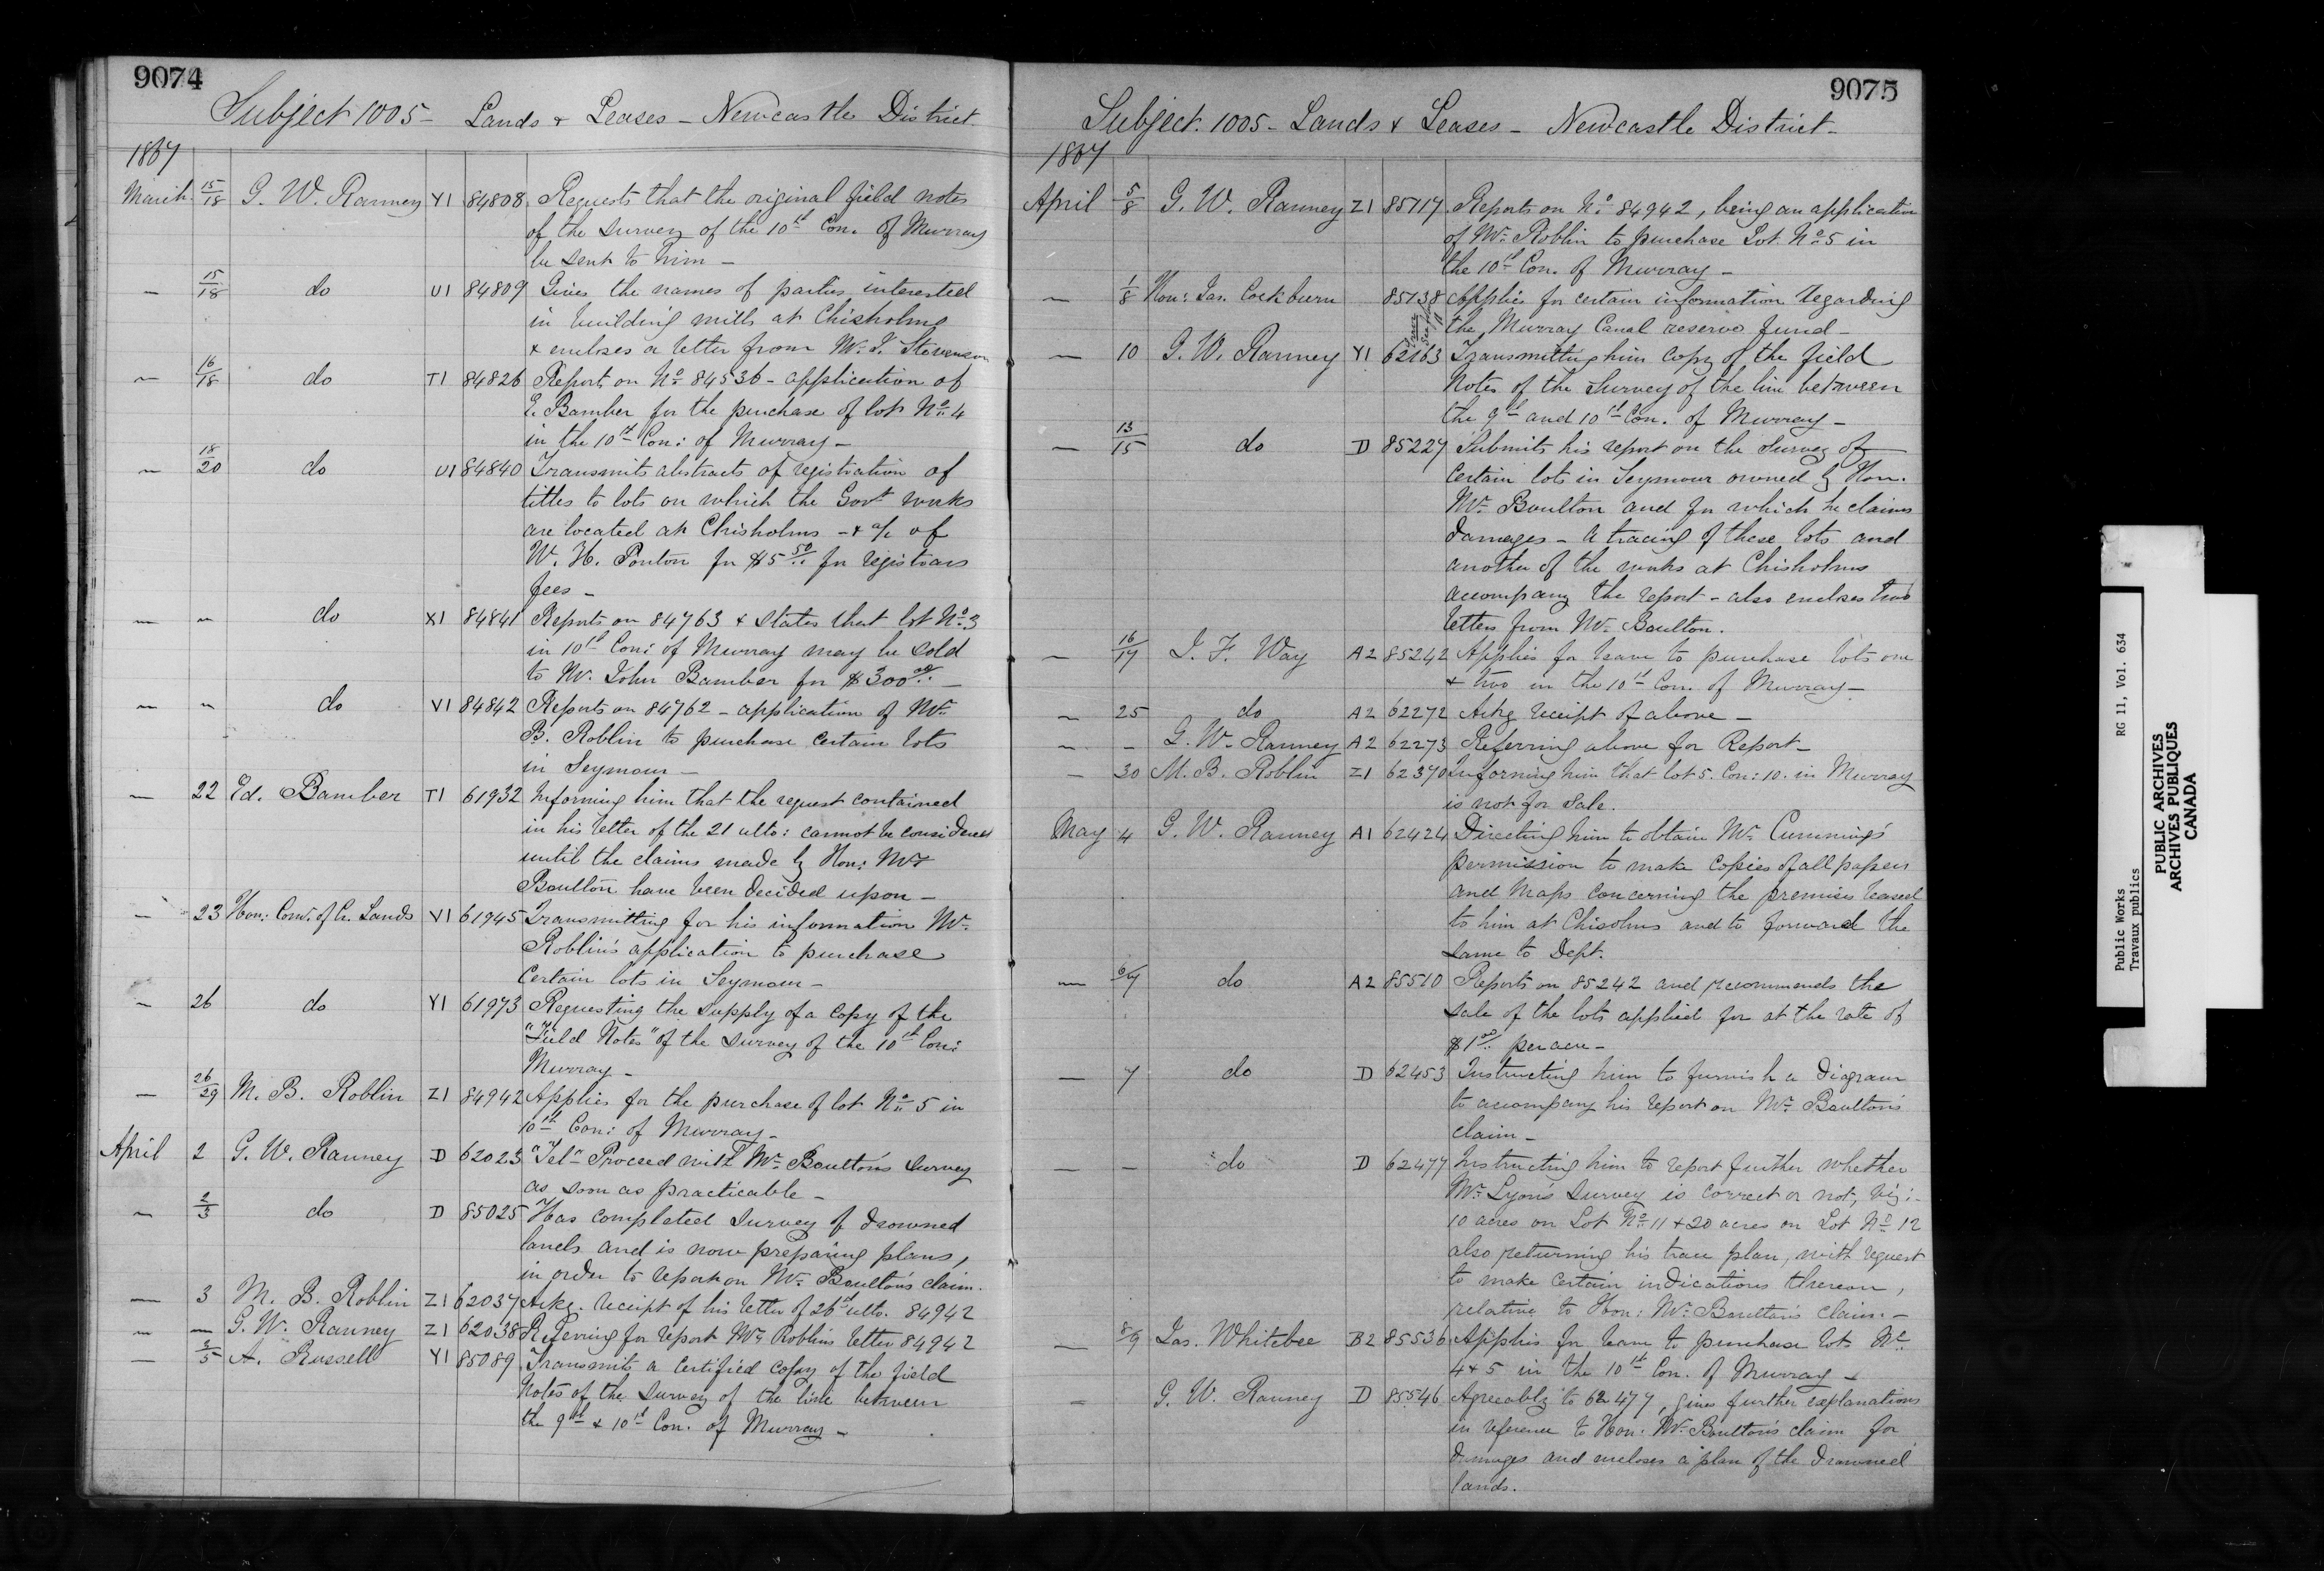 9074
Subject 1005 - Lands & Leases - Newcastle District
1867
March 15/18 G. W. Ranney Y1 84808 Requests that the original field notes
of the survey of the 10th Con. of Murray
be sent to him -
— 15/18 do U1 84809 Gives the names of parties interested
in building mills at Chisholms
& encloses a letter from Mr. J. Stevenson
— 16/18 do T1 84826 Report on No. 84536 - application of
E. Bamber for the purchase of lot No. 4
in the 10th Con: of Murray -
— 18/20 do U1 84840 Transmits abstracts of registration of
titles to lots on which the Govt works
are located at Chisholms - & a/c of
W. H. Ponton for $5 50/.. for registrars
fees -
— " do X1 84841 Reports on 84763 & states that lot No. 3
in 10th Con: of Murray may be sold
to Mr. John Bamber for $300 00/.. -
— " do V1 84842 Reports on 84762 - application of Mr.
B. Roblin to purchase certain lots
in Seymour -
— 22 Ed. Bamber T1 61932 Informing him that the request contained
in his letter of the 21 ulto: cannot be considered
until the claims made by Hon: Mr
Boulton have been decided upon -
— 23 Hon: Comr. of Cr. Lands V1 61945 Transmitting for his information Mr.
Roblin's application to purchase
certain lots in Seymour -
— 26 do Y1 61973 Requesting the supply of a copy of the
"Field Notes" of the survey of the 10th Con:
Murray -
— 26/29 M. B. Roblin Z1 84942 Applies for the purchase of lot No. 5 in
10th Con: of Murray -
April 2 G. W. Ranney D 62023 "Tel" Proceed with Mr. Boulton's survey
as soon as practicable -
— 2/3 do D 85025 Has completed survey of drowned
lands and is now preparing plans,
in order to report on Mr. Boulton's claim.
— 3 M. B. Roblin Z1 62037 Ackg. receipt of his letter of 26th ulto. 84942
— — G. W. Ranney Z1 62038 Referring for report Mr. Roblin's letter 84942
— 3/5 A. Russell Y1 85089 Transmits a certified copy of the field
notes of the survey of the line between
the 9th & 10th Con. of Murray -
9075
Subject. 1005 - Lands & Leases - Newcastle District -
1867
April 5/8 G. W. Ranney Z1 85117 Reports on No. 84942, being an application
of Mr. Roblin to purchase Lot No. 5 in
the 10th Con. of Murray -
— 1/8 Hon: Jas. Cockburn 85138 Applies for certain information regarding
the Murray Canal reserve fund -
— 10 G. W. Ranney Y1 62163 Transmitting him copy of the field
notes of the survey of the line between
the 9th and 10th Con. of Murray -
— 13/15 do D 85227 Submits his report on the survey of
certain lots in Seymour owned by Hon.
Mr. Boulton and for which he claims
damages - a tracing of these lots and
another of the works at Chisholms
accompany the report - also encloses two
letters from Mr. Boulton.
— 16/17 J. F. Way A2 85242 Applies for leave to purchase lots one
& two in the 10th Con. of Murray -
— 25 do A2 62272 Ackg receipt of above -
— — G. W. Ranney A2 62273 Referring above for Report -
— 30 M. B. Roblin Z1 62370 Informing him that lot 5. Con: 10. in Murray
is not for sale.
May 4 G. W. Ranney A1 62424 Directing him to obtain Mr. Cumming's
permission to make copies of all papers
and maps concerning the premises leased
to him at Chisolms and to forward the
same to Dept.
— 6/7 do A2 85510 Reports on 85242 and recommends the
sale of the lots applied for at the rate of
$1 00/.. per acre -
— 7 do D 62453 Instructing him to furnish a diagram
to accompany his report on Mr. Boulton's
claim -
— — do D 62477 Instructing him to report further whether
Mr. Lyon's survey is correct or not, viz: -
10 acres on Lot No. 11 & 20 acres on Lot No. 12
also returning his trace plan, with request
to make certain indications thereon,
relative to Hon: Mr. Boulton's claim. -
— 8/9 Jas. Whitebee B2 85536 Applies for leave to purchase lots No.
4 & 5 in the 10th Con. of Murray -
— G. W. Ranney D 85546 Agreeably to 62477, gives further explanations
in reference to Hon: Mr. Boulton's claim for
damages and encloses a plan of the drowned
lands.
Public Works RG 11, Vol. 634
Travaux publics
PUBLIC ARCHIVES
ARCHIVES PUBLIQUES
CANADA